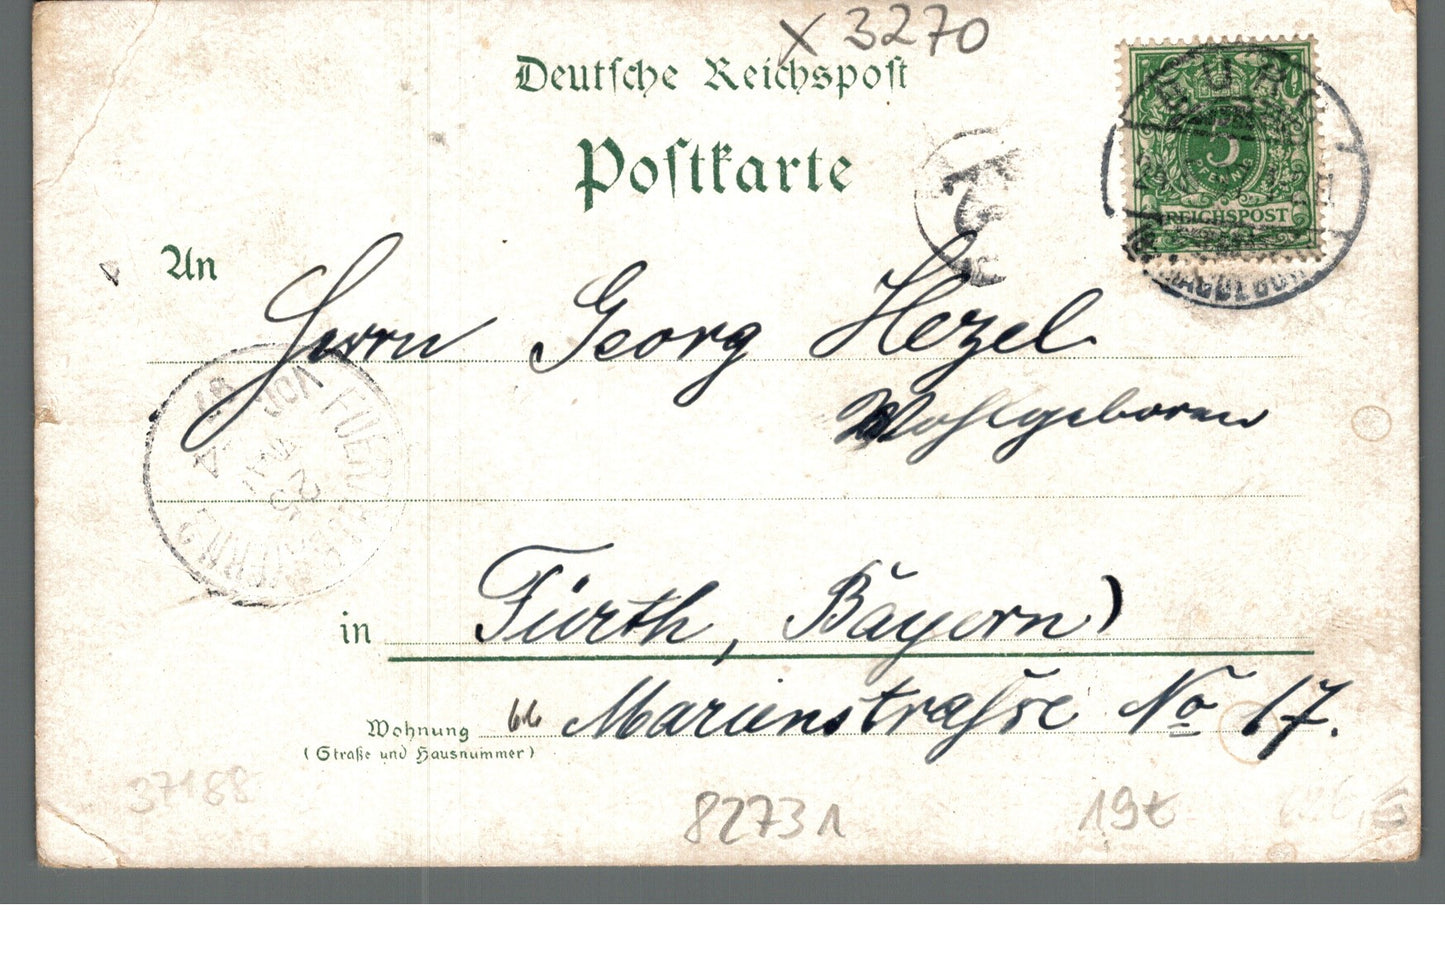 x 3270
Deutsche Reichspost
Postkarte
5
PFENNIG
REICHSPOST
An
Herrn Georg Hezel
Wohlgeboren
in Fürth, Bayern)
Wohnung Marienstraße No 17.
(Straße und Hausnummer)
37188
82731